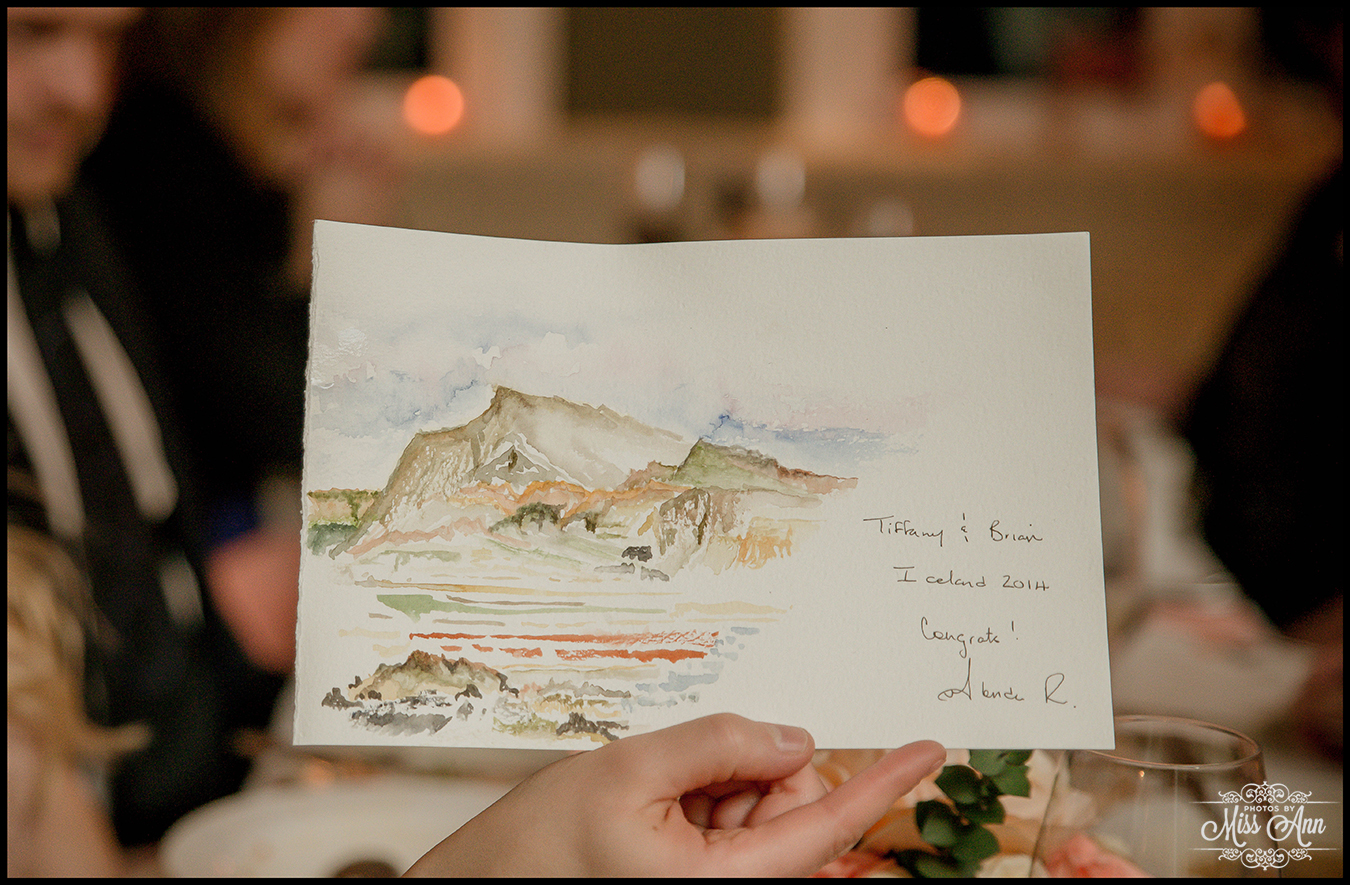 Tiffany & Brian
Iceland 2014
Congrats!
R.
PHOTOS BY
Miss Ann